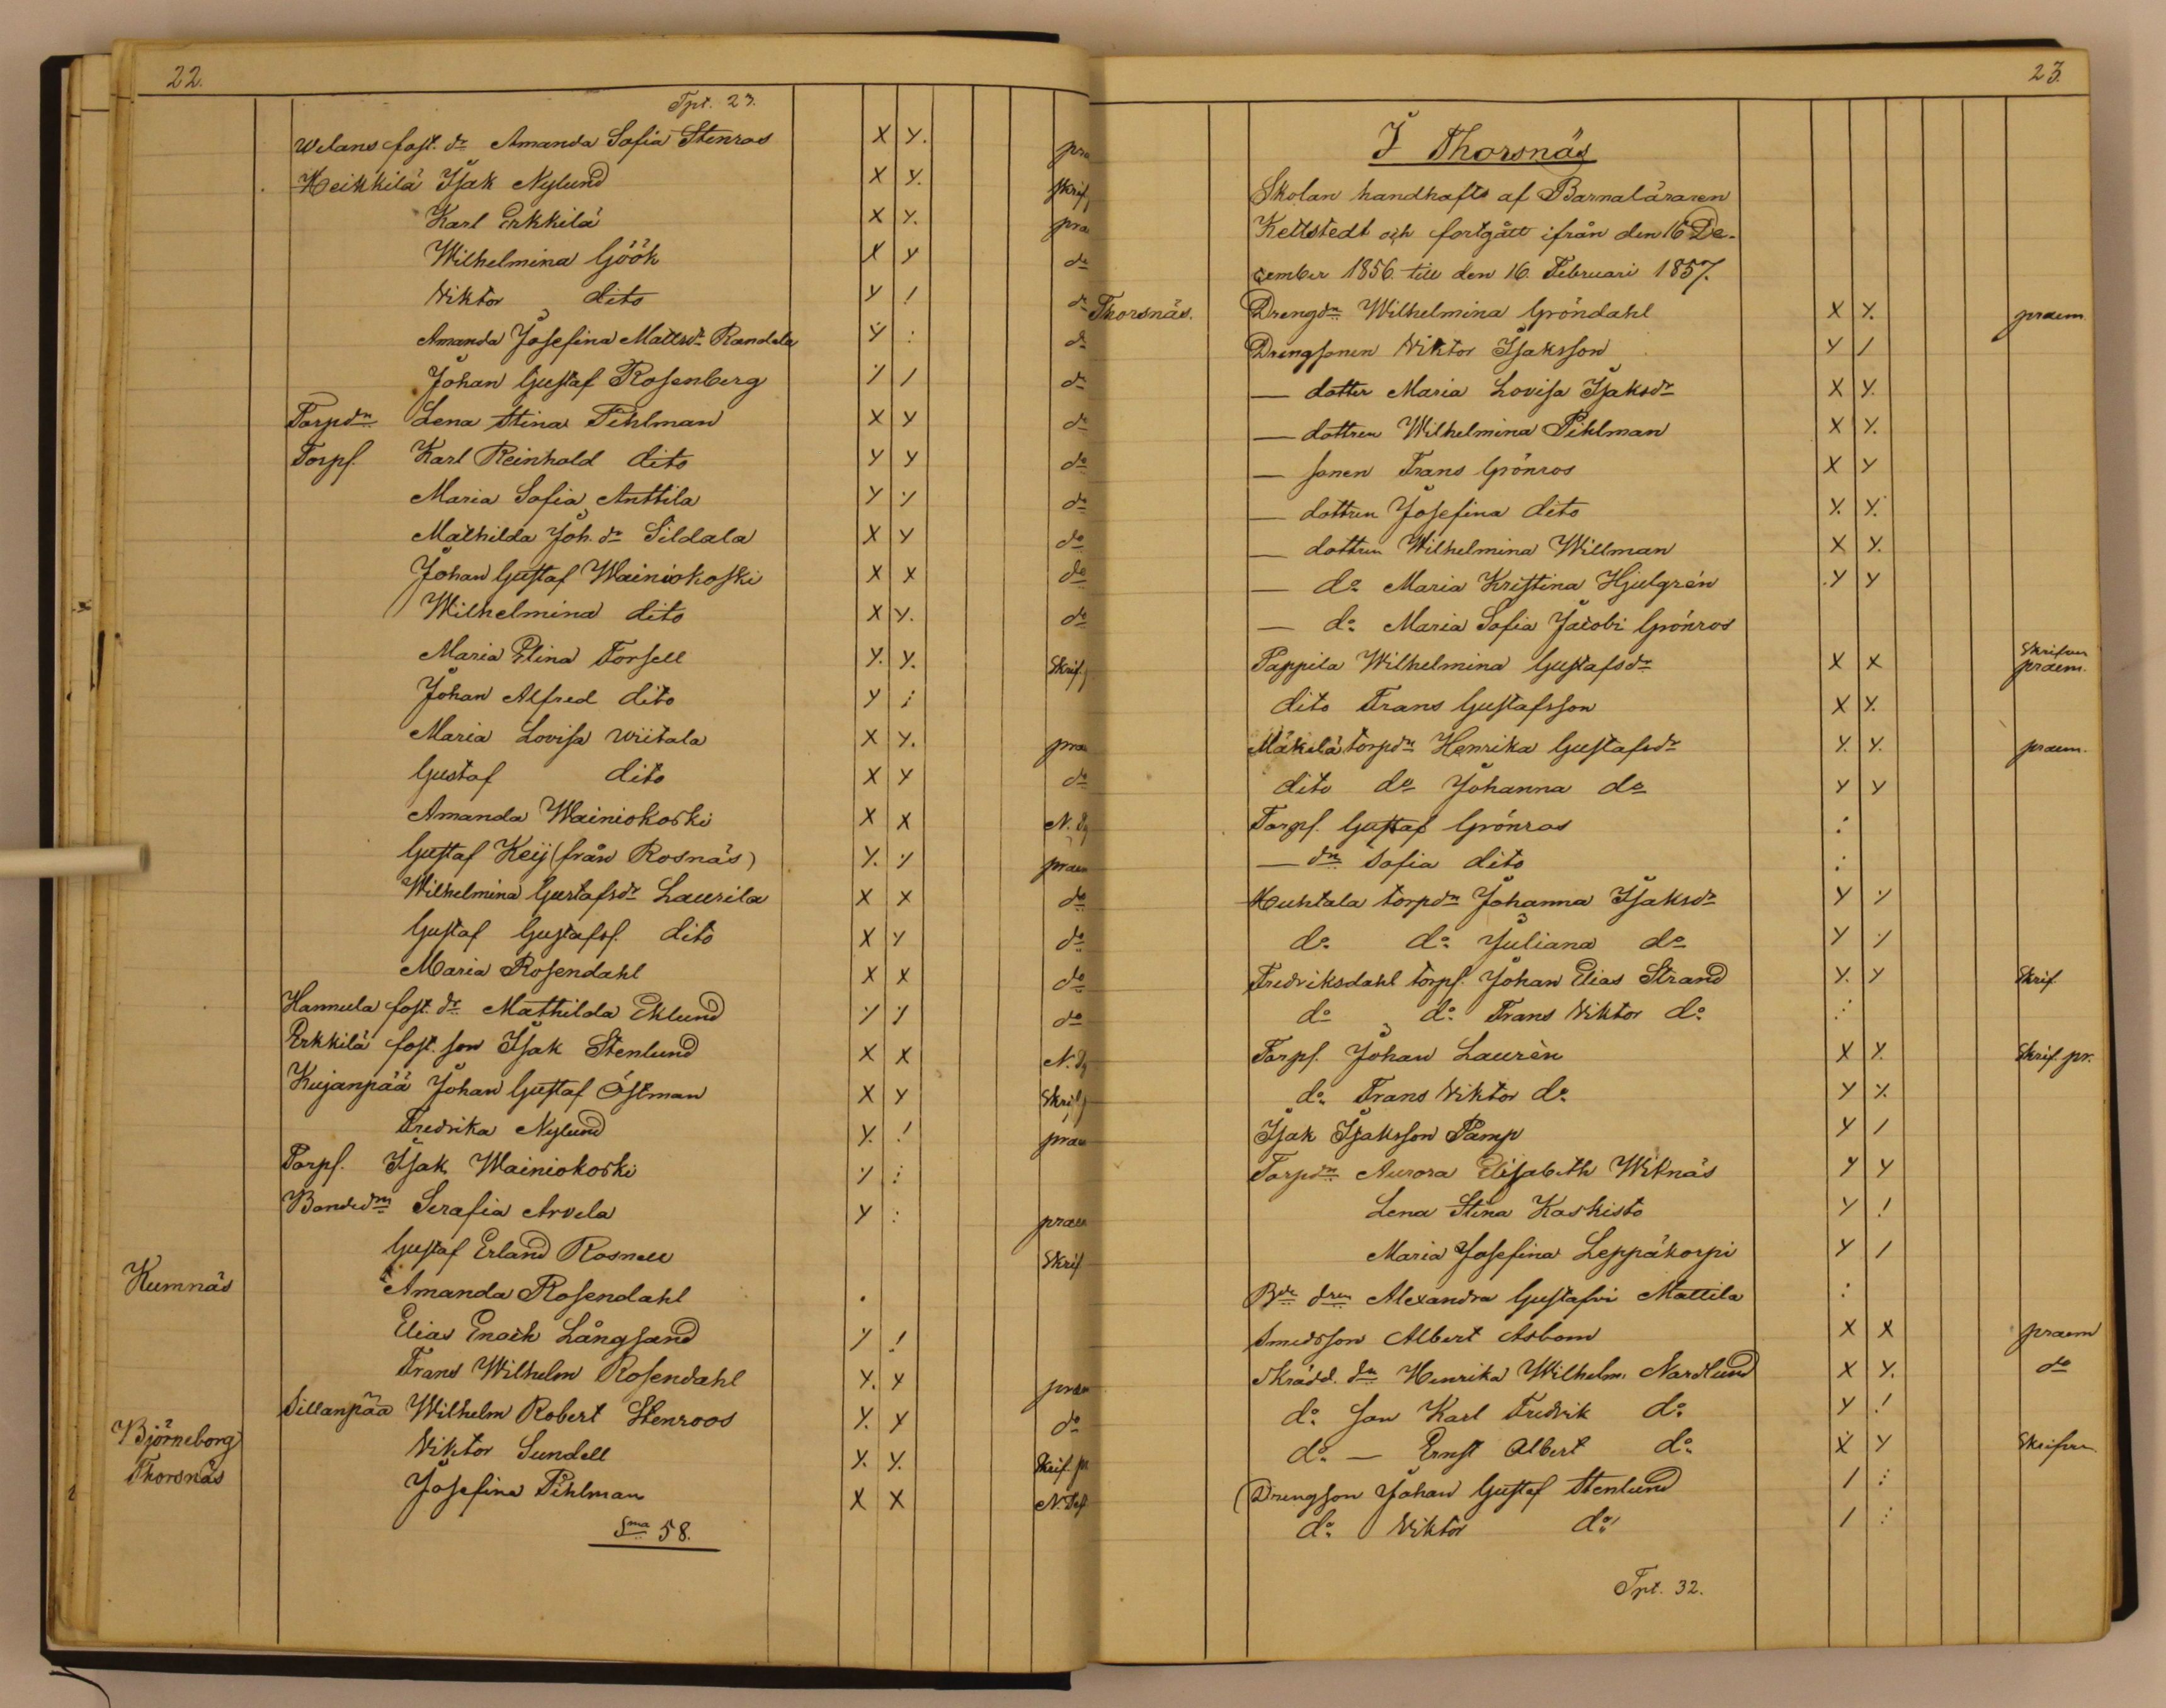 22.
Tpt. 23.
Welans fost. dr Amanda Sofia Stenros X Y. pra
Heikkilä Isak Nylund X Y. skrif
Karl Erkkilä X Y. pra
Wilhelmina Göök X Y do
Viktor dito Y ! do
Amanda Josefina Mattsdr Randela Y :  do
Johan Gustaf Rosenberg ٪ / do
Torpdn Lena Stina Pihlman X Y do
Torps. Karl Reinhold dito Y Y do
Maria Sofia Anttila Y ٪ do
Mathilda Joh. dr Sildala X Y do
Johan Gustaf Wainiokoski X X do
Wilhelmina dito X Y. do
Maria Elina Forsell Y. Y. Skrif.
Johan Alfred dito Y :
Maria Lovisa Wiitala X Y. prae
Gustaf dito X Y do
Amanda Wainiokoski X X N.
Gustaf Keij (från Rosnäs) Y. ٪ praem
Wilhelmina Gustafsdr Laurila X X do
Gustaf Gustafss. dito X Y do
Maria Rosendahl X X do
Hannula fost. dr Mathilda Eklund ٪ ٪ do
Erkkilä fost. son Isak Stenlund X X N.
Kujanpää Johan Gustaf Östman X Y Skrif
Fredrika Nylund Y. ! prae
Torps. Isak Wainiokoski ٪ :
Bondedn Serafia Arvela Y : prae
Gustaf Erland Rosnell Skrif
Kumnäs Amanda Rosendahl .
Elias Enoch Långsand Y !
Frans Wilhelm Rosendahl Y. Y prae
Sillanpää Wilhelm Robert Stenroos Y. Y do
Björneborg Viktor Sundell Y. Y. Skrif. pr
Thorsnäs Josefina Pihlman X X N. Test
Sma 58.
23
I Thorsnäs
Skolan handhafts af Barnaläraren
Kettstedt och fortgått ifrån den 16 De-
cember 1856 till den 16. Februari 1857.
Thorsnäs. Drengdn Wilhelmina Gröndahl X Y. praem.
Drengsonen Viktor Isaksson Y /
— dotter Maria Lovisa Isaksdr X Y.
— dottren Wilhelmina Pihlman X Y.
— sonen Frans Grönros X Y
— dottren Josefina dito Y. Y.
— dottren Wilhelmina Willman X Y.
— do Maria Kristina Hjulgrén Y Y
— do Maria Sofia Jacobi Grönros
Pappila Wilhelmina Gustafsdr X X Skrifver praem.
dito Frans Gustafsson X Y.
Mäkilä torpdn Henrika Gustafsdr Y. Y. praem.
dito do Johanna do Y Y
Torps. Gustaf Grönros :
— dn Sofia dito :
Huhtala torpdn Johanna Isaksdr Y ٪
do do Juliana do Y ٪
Fredriksdahl torps. Johan Elias Strand Y. Y Skrif.
do do Frans Viktor do :
Torps. Johan Laurén X Y. Skrif. pr.
do Frans Viktor do Y Y.
Isak Isaksson Pamp Y /
Torpdn Aurora Elisabeth Witnäs Y Y
Lena Stina Kaskisto Y !
Maria Josefina Leppäkorpi Y /
Bde dren Alexandra Gustafvi Mattila :
Smedsson Albert Asbom X X praem
Skrädd. dn Henrika Wilhelm. Nardlund X Y. do
do son Karl Fredrik do Y !
do — Ernst Albert do X Y Skrifver.
Drengson Johan Gustaf Stenlund / :
do Viktor do / :
Tpt. 32.